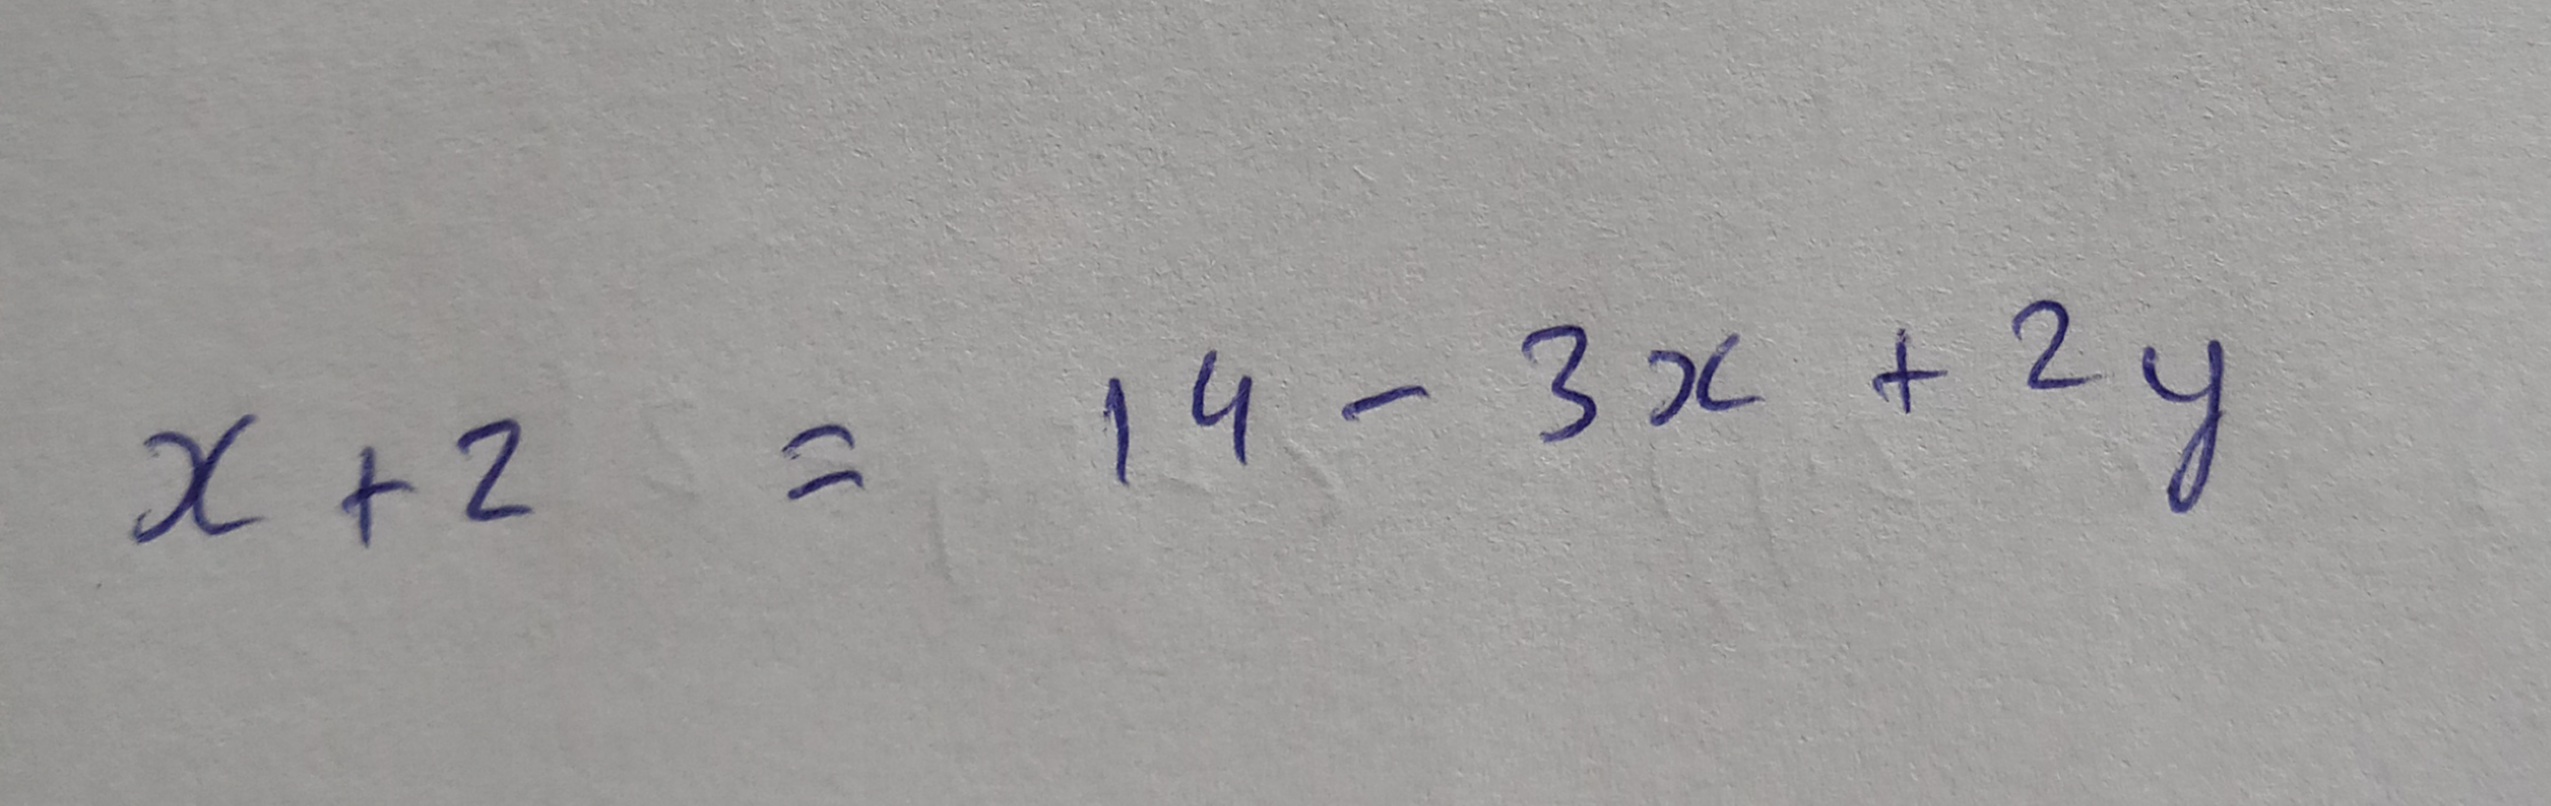 x + 2 = 14 - 3x + 2y